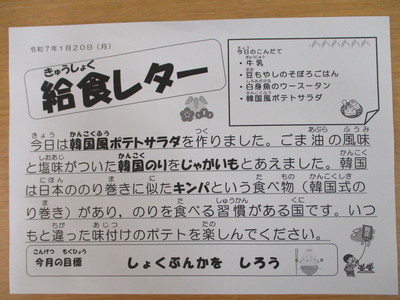 令和7年1月20日（月）
きゅうしょく
給食レター
今日のこんだて
・牛乳
・豆もやしのそぼろごはん
・白身魚のウースータン
・韓国風ポテトサラダ
今日は韓国風ポテトサラダを作りました。ごま油の風味
と塩味がついた韓国のりをじゃがいもとあえました。韓国
は日本ののり巻きに似たキンパという食べ物（韓国式の
り巻き）があり，のりを食べる習慣がある国です。いつ
もと違った味付けのポテトを楽しんでください。
こんげつ もくひょう
今月の目標
しょくぶんかを しろう